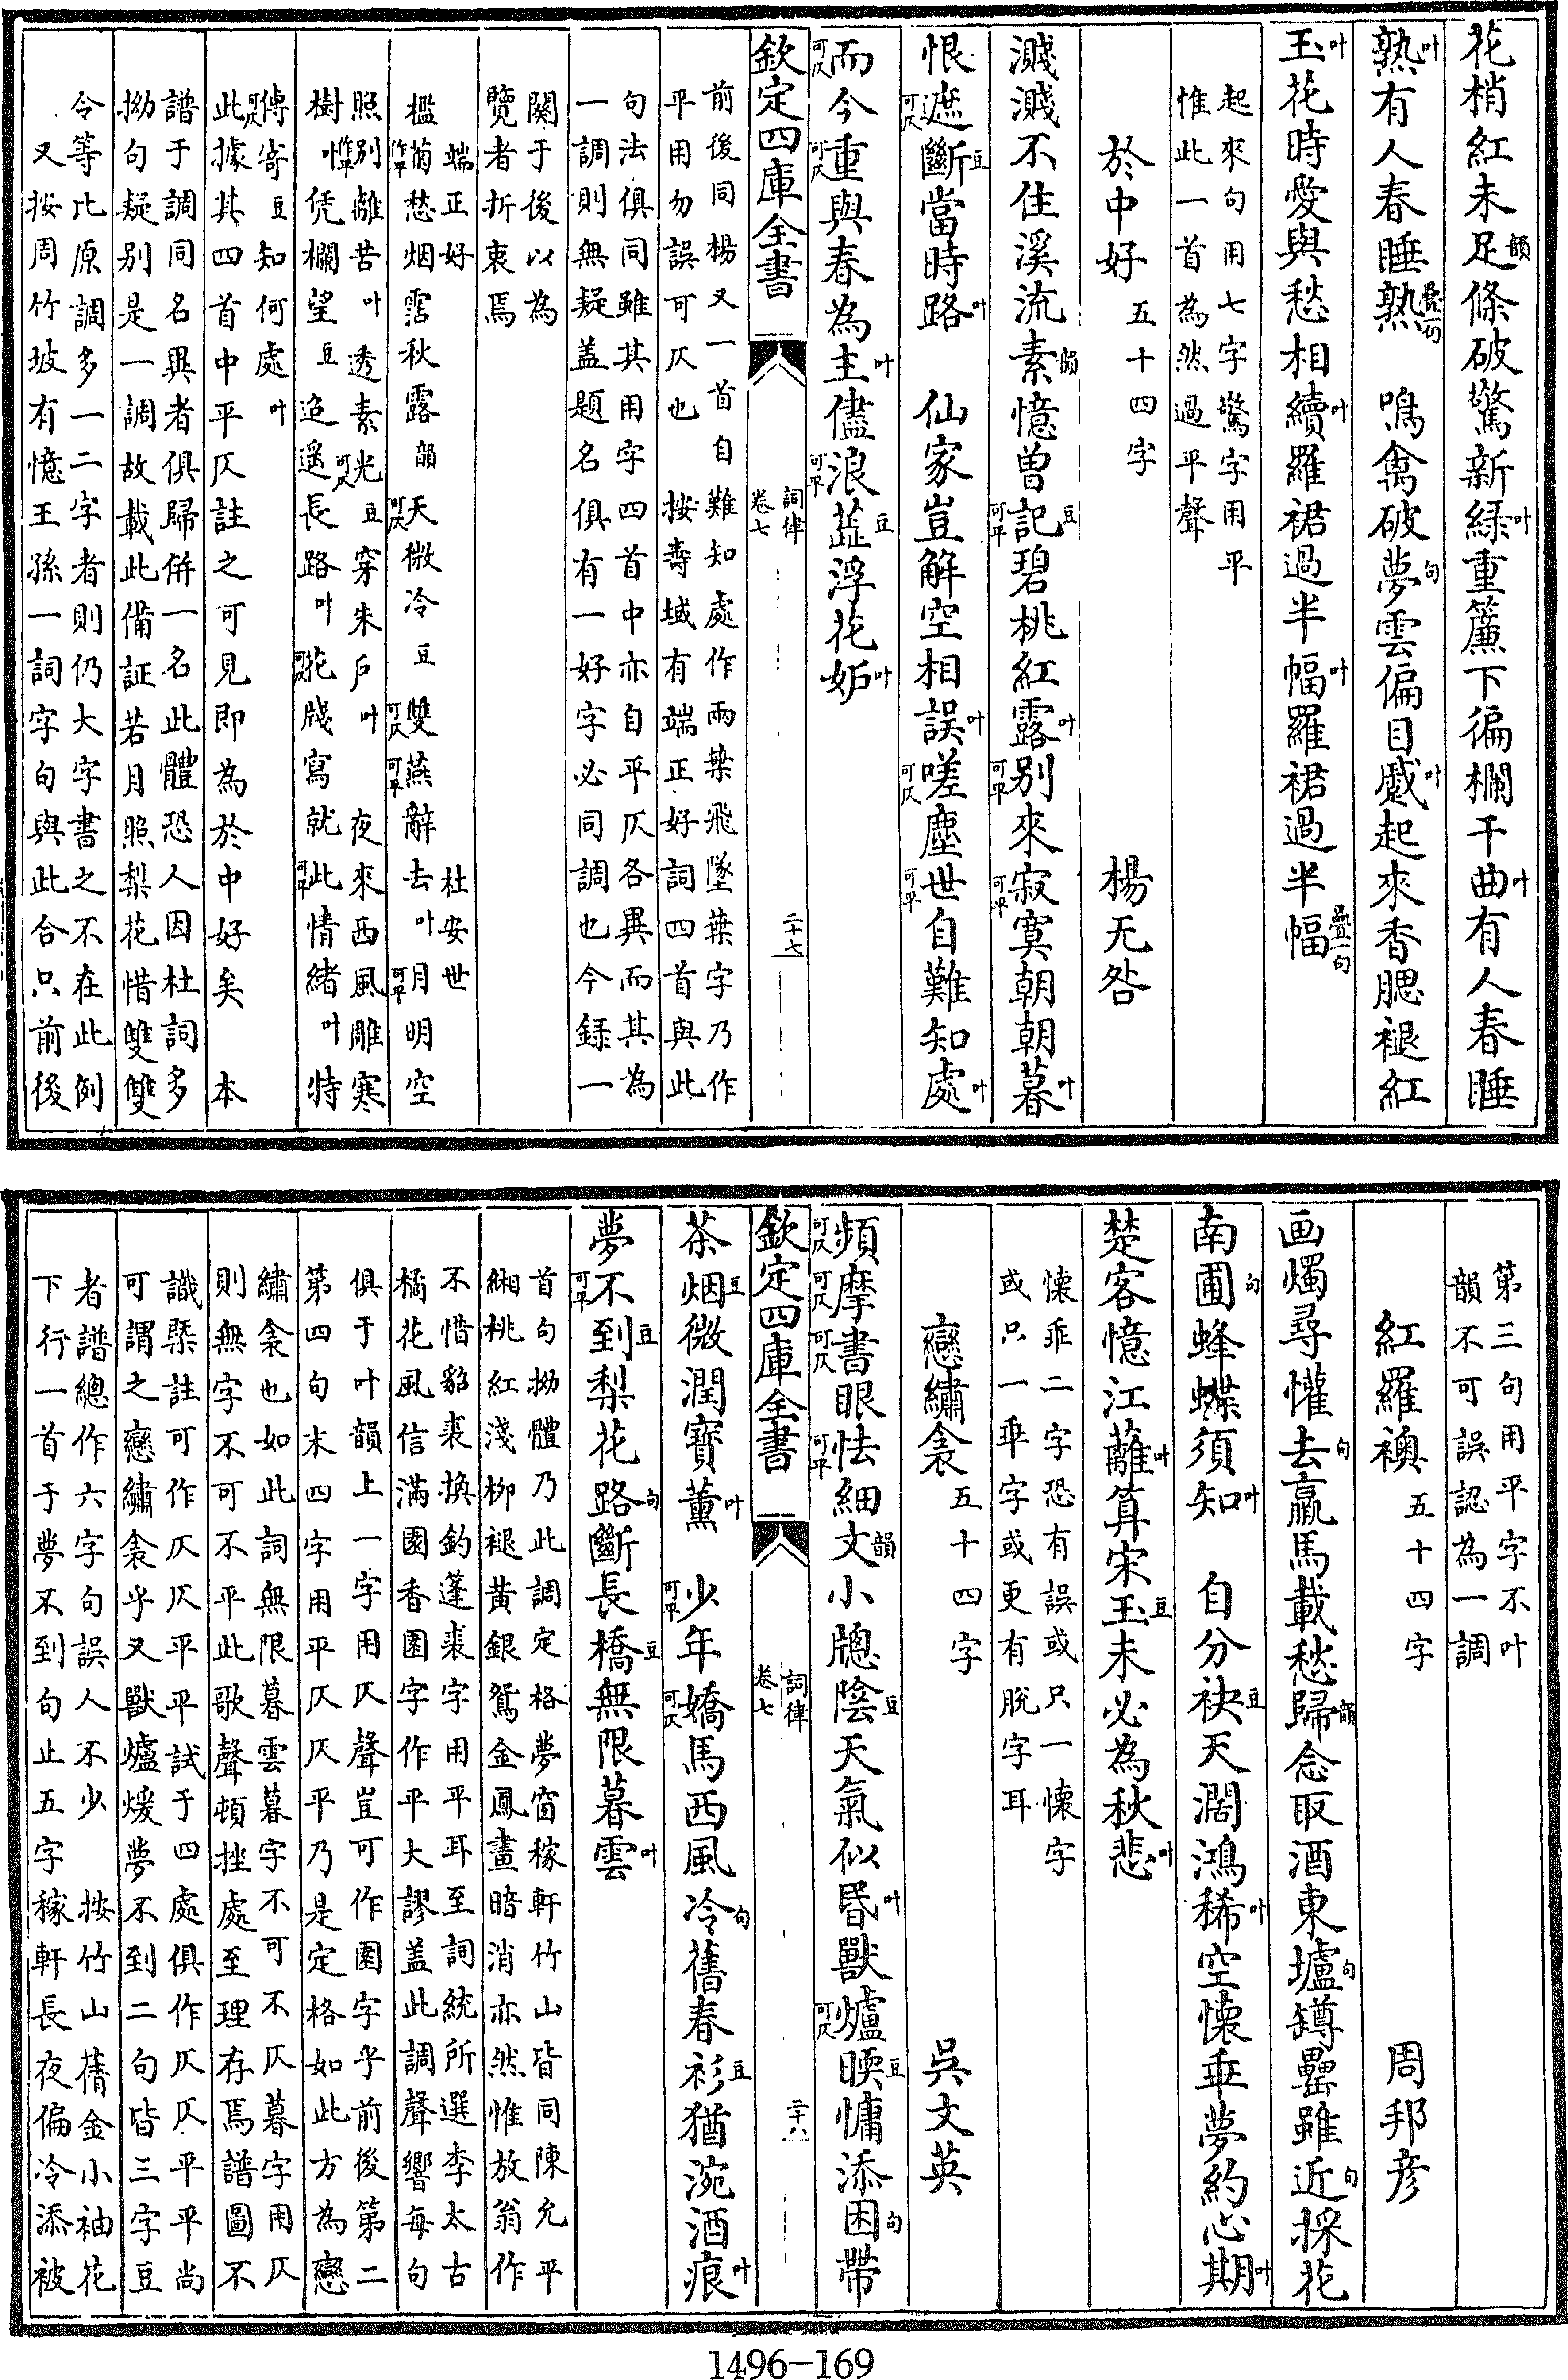 花梢紅未足韻條破驚新綠叶重簾下徧欄干曲叶有人春睡
熟叶有人春睡熟疊一句 鳴禽破夢句雲偏目蹙叶起來香腮褪紅
玉叶花時愛與愁相續叶羅裙過半幅叶羅裙過半幅疊一句
起來句用七字驚字用平
惟此一首為然過平聲
於中好 五十四字 楊无咎
濺濺不住溪流素韻憶曾記豆可平碧桃紅露叶別可平來寂可平寞朝朝暮叶
恨遮可仄斷豆當時路叶 仙家豈解空相誤叶嗟可仄塵世可平自難知處叶
而可仄今重可仄與春為主叶儘浪可平蕋豆浮花妬叶
欽定四庫全書 詞律 卷七 二十七
前後同楊又一首自難知處作兩葉飛墜葉字乃作
平用勿誤可仄也 按壽域有端正好詞四首與此
句法俱同雖其用字四首中亦自平仄各異而其為
一調則無疑盖題名俱有一好字必同調也今錄一
闋于後以為
覽者折衷焉
端正好 杜安世
檻菊作平愁烟霑秋露韻天可仄微冷豆雙可仄燕可平辭去叶月可平明空
照別作平離苦叶透素光可仄豆穿朱戶叶 夜來西風雕寒
樹叶凭欄望豆迢遥長路叶花可仄牋寫就此可平情緒叶特
傳可仄寄豆知何處叶
此據其四首中平仄註之可見即為於中好矣 本
譜于調同名異者俱歸併一名此體恐人因杜詞多
拗句疑別是一調故載此備証若月照梨花惜雙雙
令等比原調多一二字者則仍大字書之不在此例
又按周竹坡有憶王孫一詞字句與此合只前後
第三句用平字不叶
韻不可誤認為一調
紅羅襖 五十四字 周邦彦
画燭尋懽去句羸馬載愁歸韻念取酒東壚句罇罍雖近句採花
南圃句蜂蝶須知叶 自分袂豆天濶鴻稀叶空懷乖夢約心期叶
楚客憶江蘺叶算宋玉豆未必為秋悲叶
懷乖二字恐有誤或只一懷字
或只一乖字或更有脫字耳
戀繡衾 五十四字 吳文英
頻可仄摩可仄書可仄眼怯可平細文韻小牕陰豆天氣似昏叶獸爐可仄暖豆慵添困句帶
茶烟豆微潤寶薰叶 少可平年嬌可仄馬西風冷句舊春衫豆猶涴酒痕叶
夢不可平到豆梨花路句斷長橋豆無限暮雲叶
欽定四庫全書 詞律 卷七 二十八
首句拗體乃此調定格夢窗稼軒竹山皆同陳允平
緗桃紅淺柳褪黄銀鴛金鳳畫暗消亦然惟放翁作
不惜貂裘換釣蓬裘字用平耳至詞統所選李太古
橘花風信滿園香園字作平大謬盖此調聲響每句
俱于叶韻上一字用仄聲豈可作園字乎前後第二
第四句末四字用平仄仄平乃是定格如此方為戀
繡衾也如此詞無限暮雲暮字不可不仄暮字用仄
則無字不可不平此歌聲頓挫處至理存焉譜圖不
識槩註可作仄仄平平試于四處俱作仄仄平平尚
可謂之戀繡衾乎又獸爐煖夢不到二句皆三字豆
者譜總作六字句誤人不少 按竹山蒨金小袖花
下行一首于夢不到句止五字稼軒長夜偏冷添被
1496-169